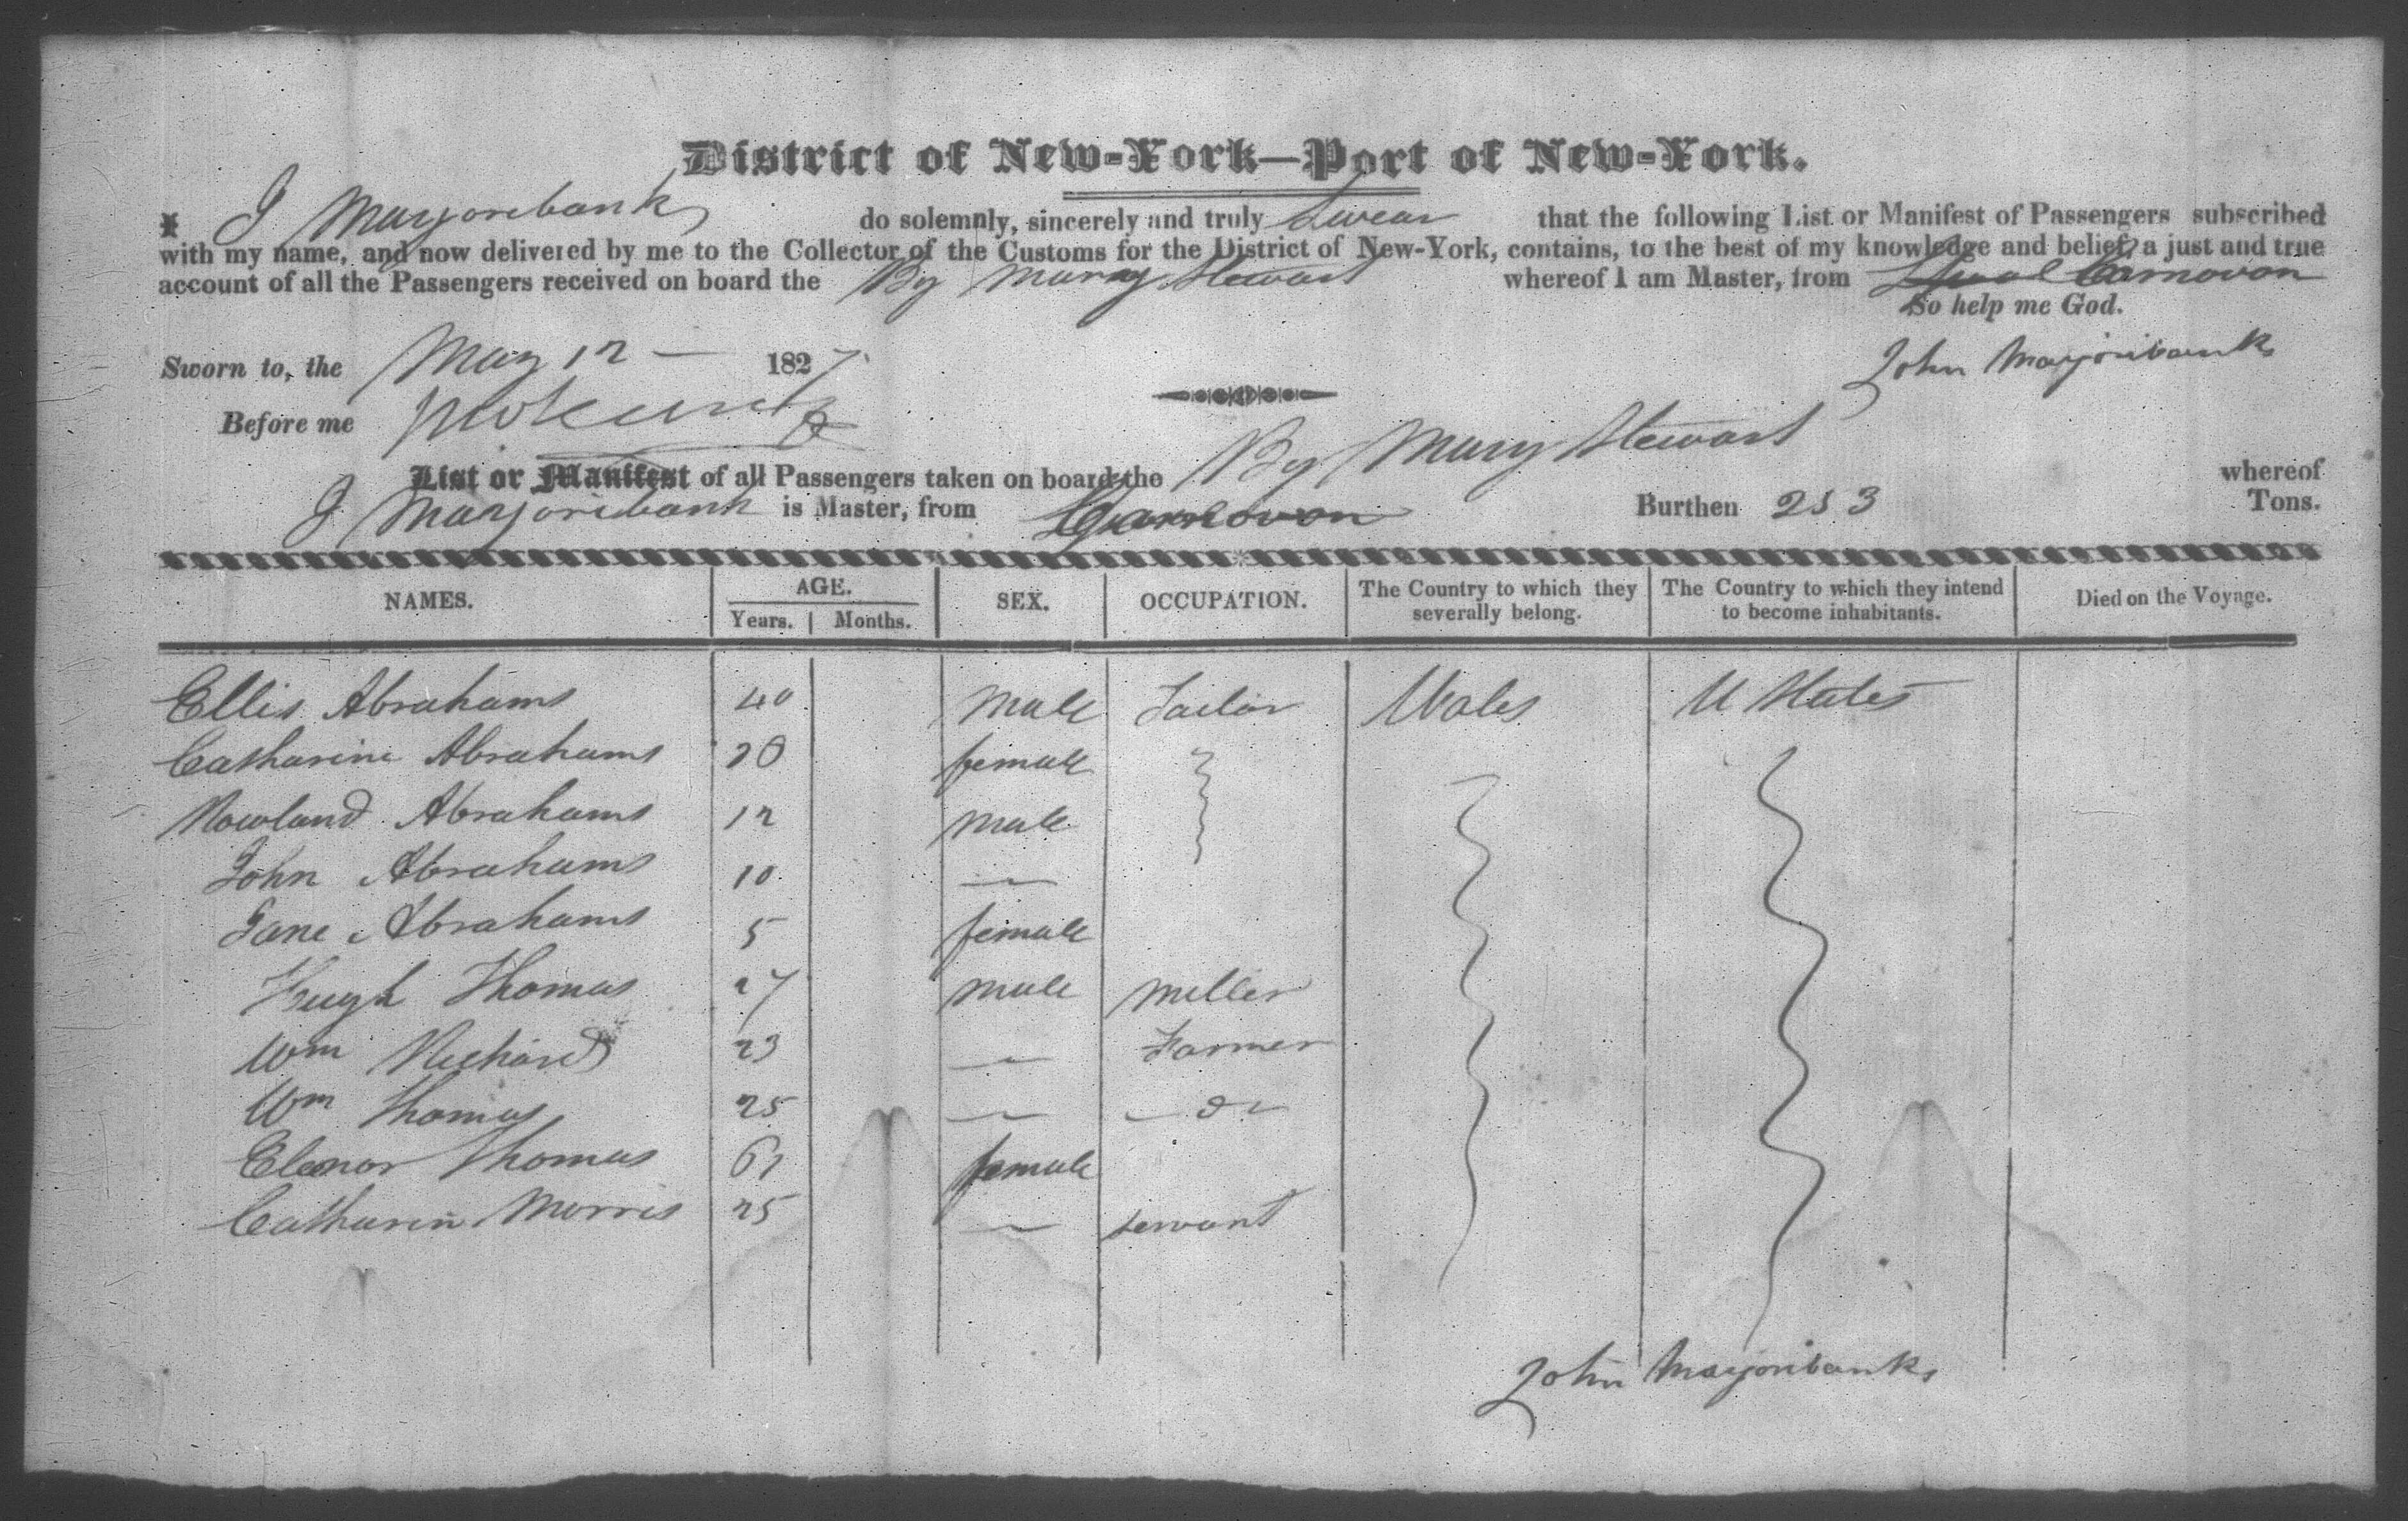 District of New-York—Port of New-York.
I J Marjoribanks do solemnly, sincerely and truly Swear that the following List or Manifest of Passengers subscribed
with my name, and now delivered by me to the Collector of the Customs for the District of New-York, contains, to the best of my knowledge and belief, a just and true
account of all the Passengers received on board the Bg Mary Stewart whereof I am Master, from Carnovon
So help me God.
Sworn to, the May 12 — 1827.
John Marjoribanks
Before me
List or Manifest of all Passengers taken on board the Bg Mary Stewart whereof
J Marjoribank is Master, from Carnovon Burthen 253 Tons.
NAMES. AGE. Years. Months. SEX. OCCUPATION. The Country to which they severally belong. The Country to which they intend to become inhabitants. Died on the Voyage.
Ellis Abrahams 40 Male Tailor Wales U States
Catharine Abrahams 28 female
Rowland Abrahams 12 Male
John Abrahams 10 —
Jane Abrahams 5 female
Hugh Thomas 27 Male Miller
Wm Richards 23 — Farmer
Wm Thomas 25 — — do —
Elenor Thomas 61 female
Catharin Morris 25 — servant
John Marjoribanks